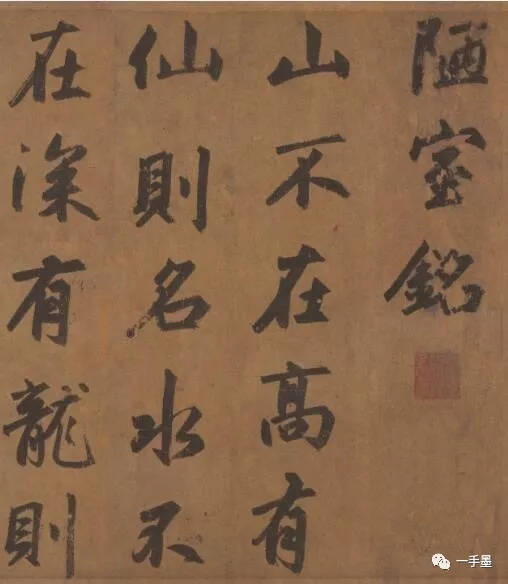 陋室銘
山不在高有
仙則名水不
在深有龍則
一手墨